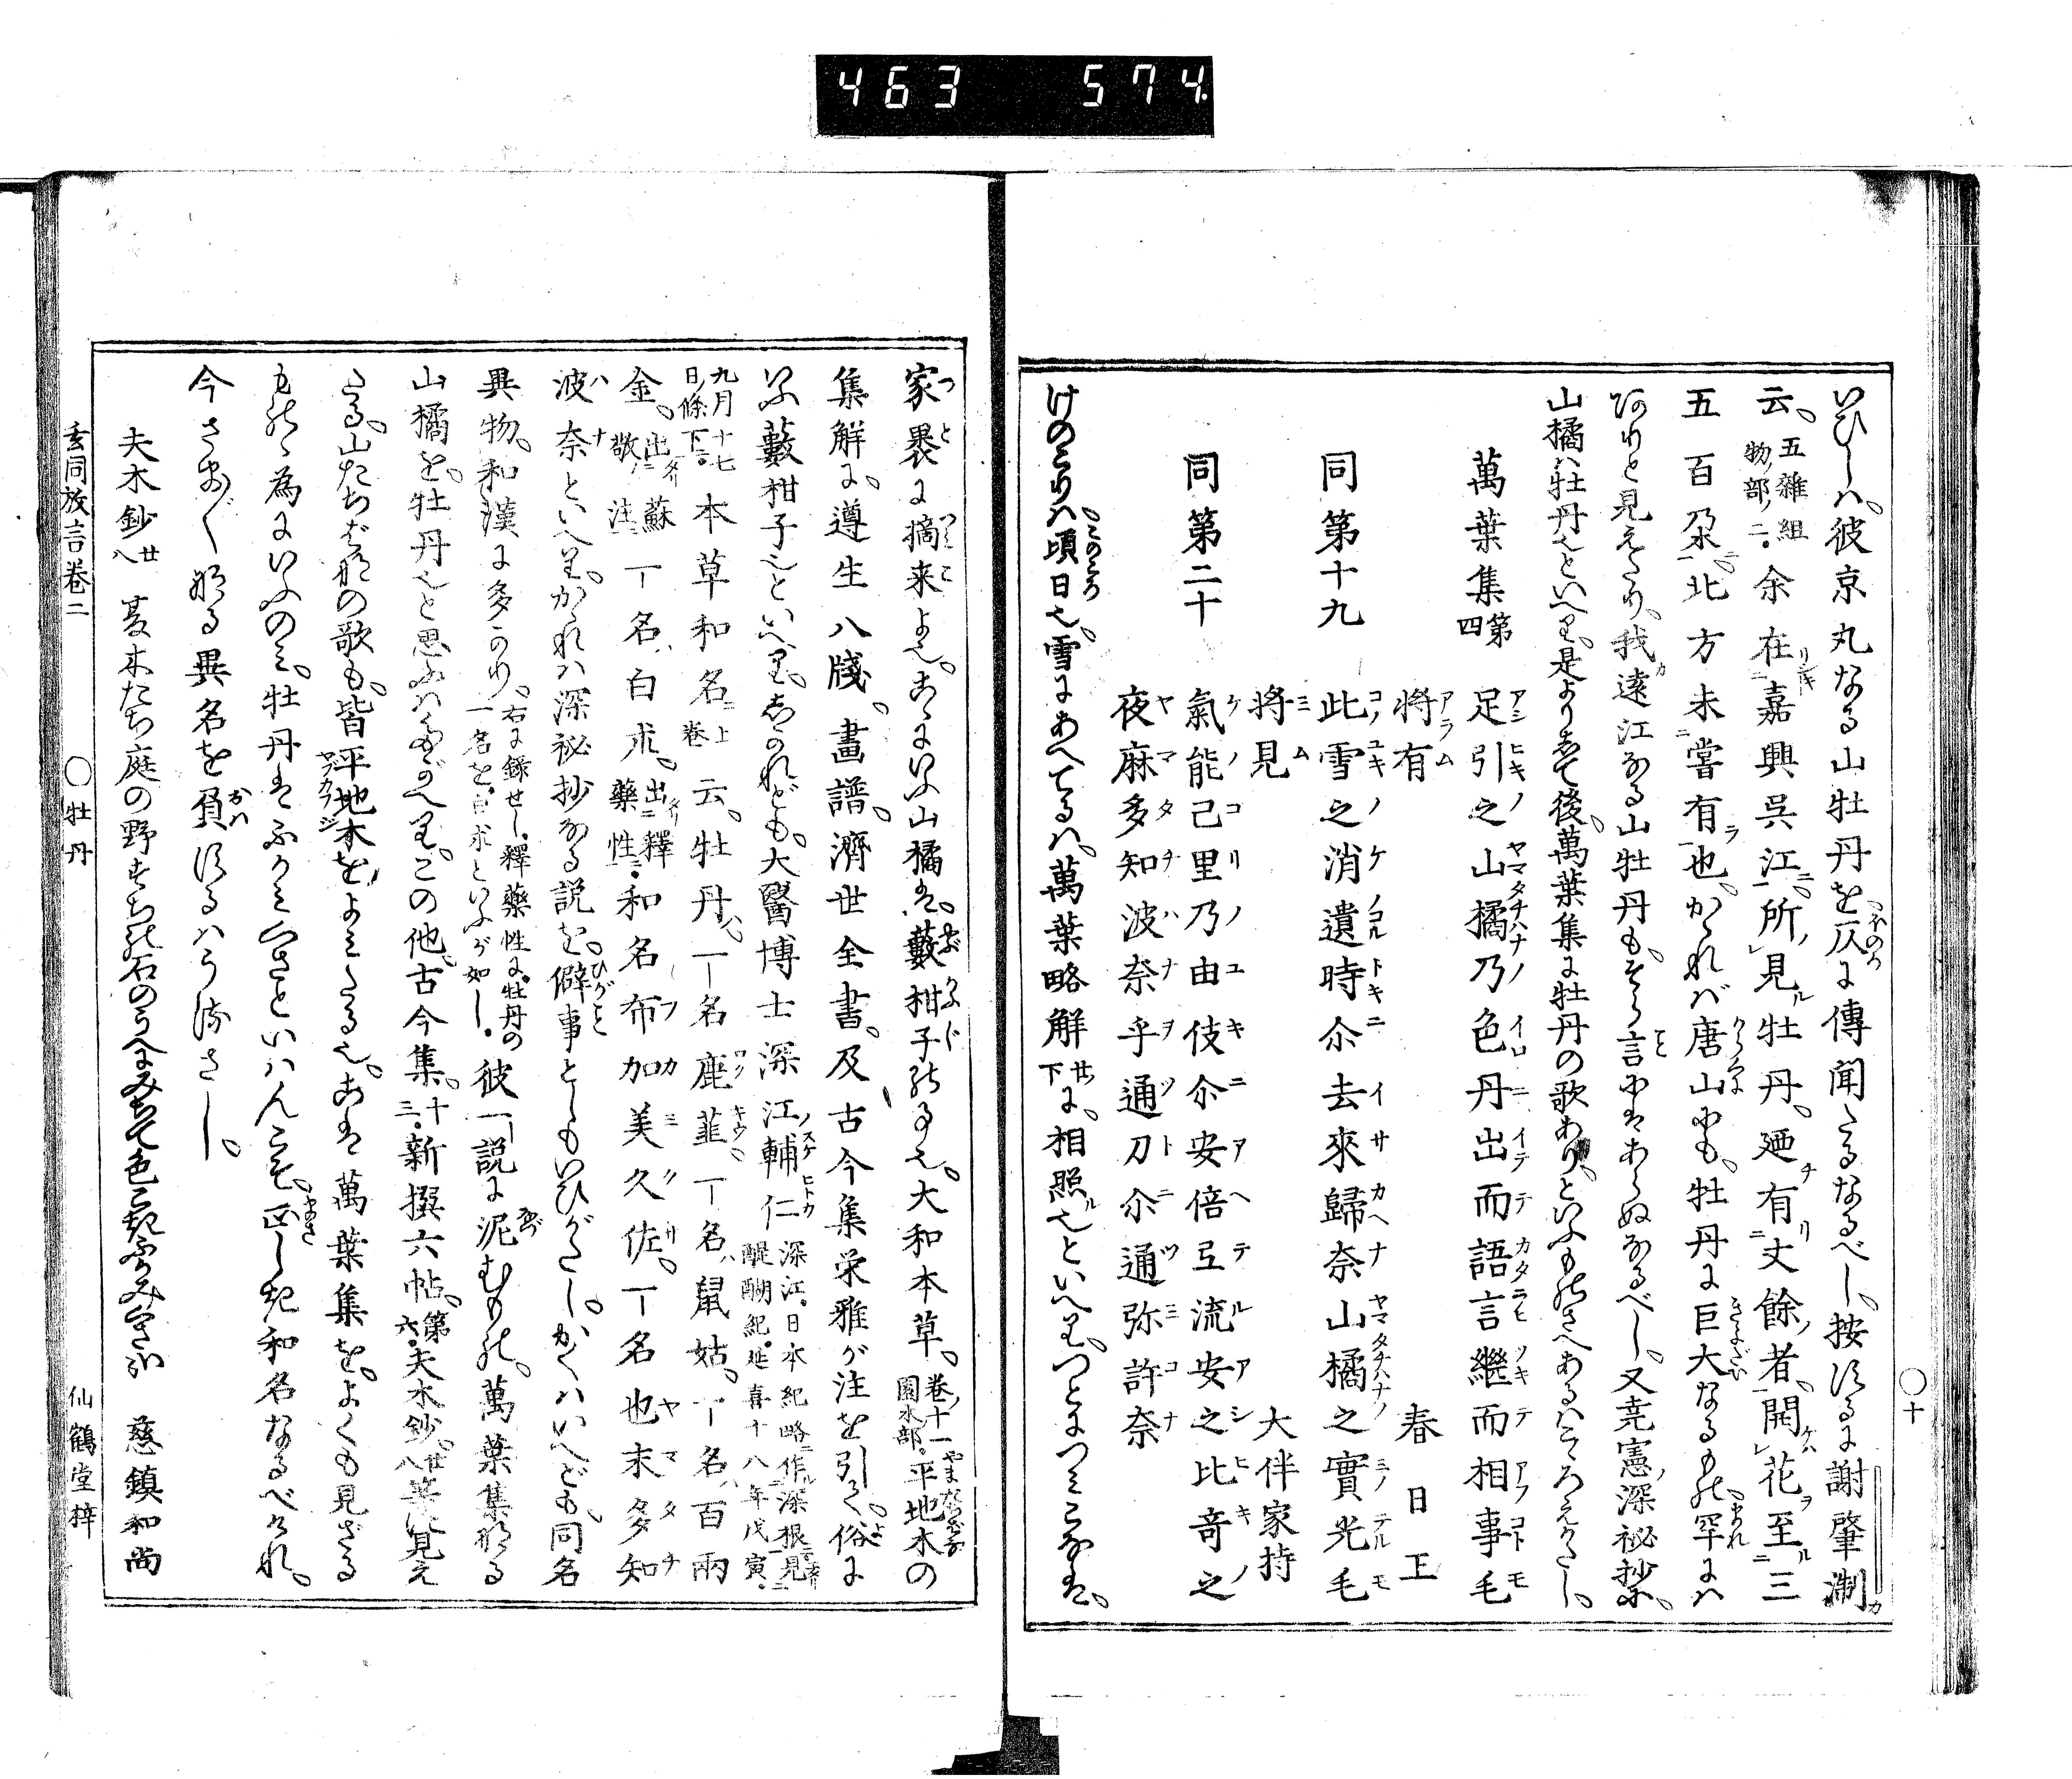 463 574
いひしハ、彼京丸なる山牡丹を仄に傳聞たるなるべし、按ずるに謝肇淛
云、五雜組物ノ部ノ二。余在嘉興呉江、所見牡丹、廼有丈餘ノ者、開花至三
五百朶、北方未嘗有也、かゝれバ唐山にも、牡丹に巨大なるもの罕にハ
ありと見えたり、我遠江なる山牡丹も、そら言にはあらぬなるべし、又堯憲ノ深祕抄ニ、
山橘ハ牡丹也といへり、是よりして後、萬葉集に牡丹の歌あり、といふものさへあるハこゝろえがたし、
萬葉集第四 足引之山橘乃色丹出而語言繼而相事毛
將有 春日王
同第十九 此雪之消遺時尒去來歸奈山橘之實光毛
將見 大伴家持
同第二十 氣能己里乃由伎尒安倍弖流安之比奇之
夜麻多知波奈乎通刀尒通弥許奈
けのこりハ頃日也、雪にあへてるハ、萬葉略解廿下に、相照也といへり、つとにつミこなは、
〇十
家裹に摘来よ也、こゝにいふ山橘は、藪柑子の事也、大和本草、卷ノ十一園木部。平地木の
集解に、遵生八牋、畫譜、濟世全書、及古今集栄雅が注を引て、俗に
いふ藪柑子也といへり、しかれども、大醫博士深江ノ輔仁深江。日本紀略ニ作深根見醍醐紀。延喜十八年戊寅。
九月十七日ノ條下。本草和名上卷云、牡丹、一名鹿韮、一名鼠姑、一名百兩
金、出蘇敬注一名白朮、出釋藥性。和名布加美久佐、一名也末多知
波奈といへり、かゝれハ深祕抄なる説を、僻事としもいひがたし、かくハいへども、同名
異物、和漢に多かり、右に錄せし、釋藥性に、牡丹の一名を、白朮といふが如し。彼一説に泥むもの、萬葉集なる
山橘を、牡丹也と思ふハたがへり、この他、古今集、十三。新撰六帖、第六。夫木鈔、廿八等に見え
たる、山たちばなの歌も、皆平地木をよミたる也、こは萬葉集を、よくも見ざる
ものゝ為にいふのミ、牡丹はふかミぐさといハんこそ、正しき和名なるべけれ、
今さまざまなる異名を負するハうるさし、
夫木鈔廿八 夏木たち庭の野すぢの石のうへにみちて色こきふかみ草かな 慈鎮和尚
玄同放言卷二 〇牡丹 仙鶴堂梓